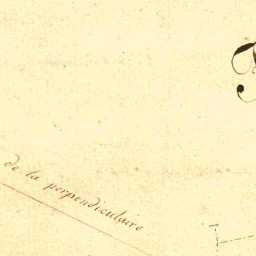 de la perpendiculaire